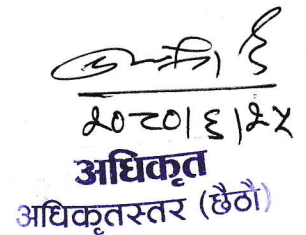 २०८०।६।२५
अधिकृत
अधिकृतस्तर (छैठौं)